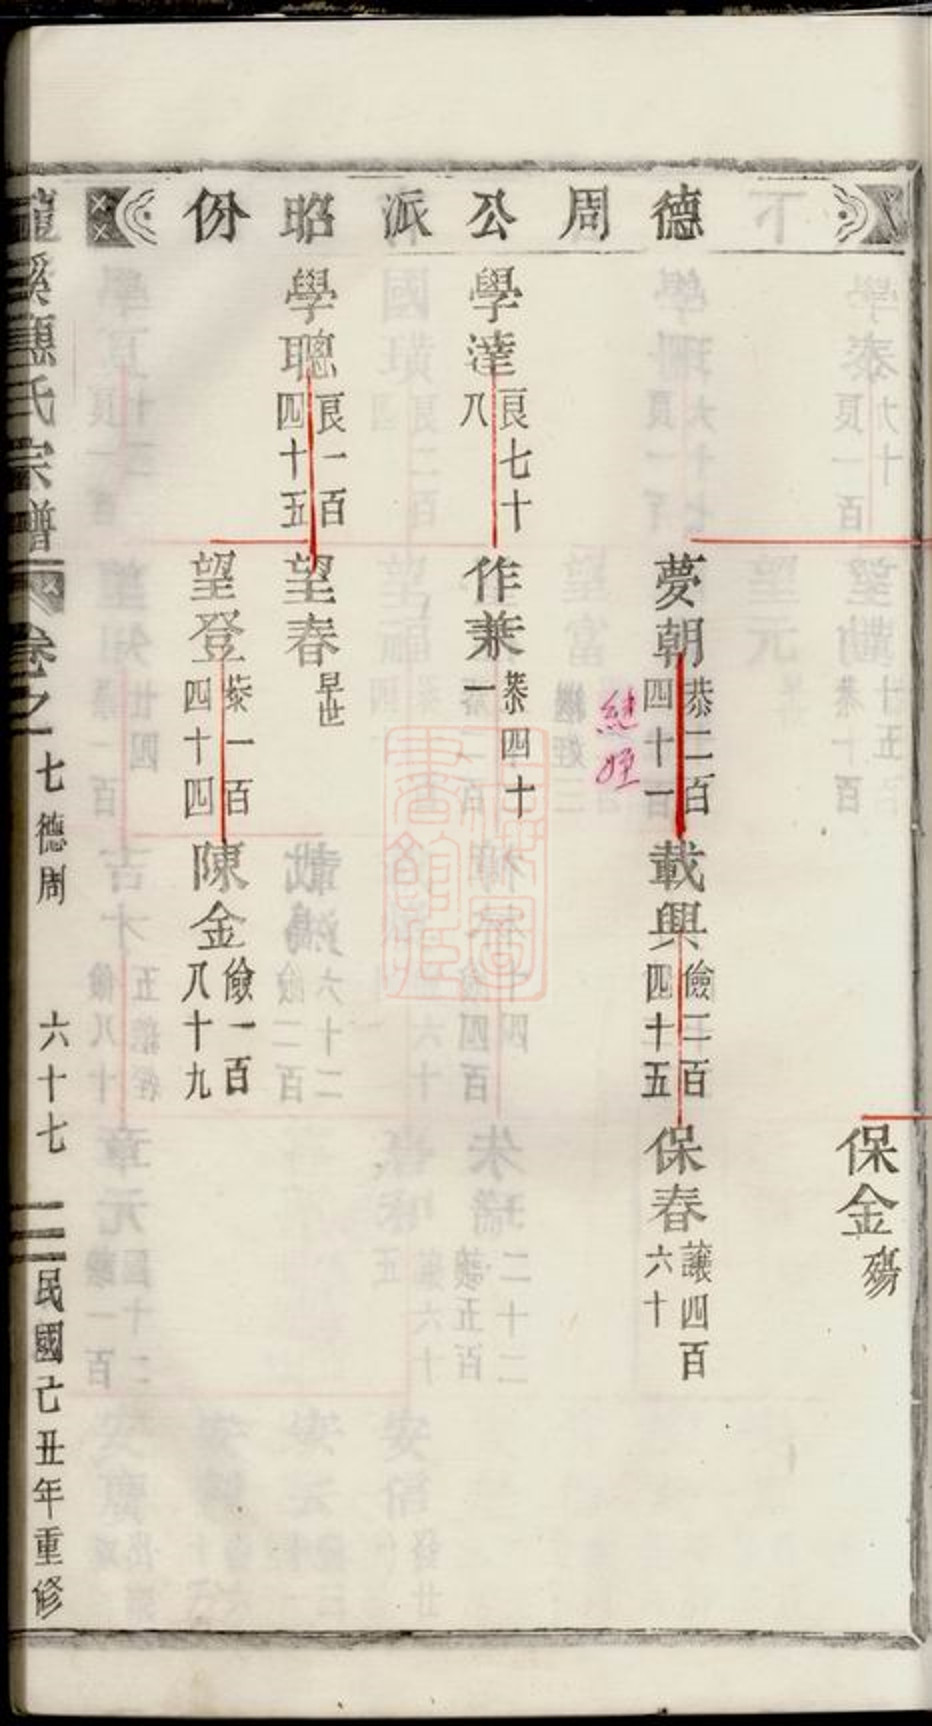 德周公派昭份
保金殤
夢朝恭二百四十一
載興儉三百四十五
保春讓四百六十
繼姪
學達良七十八
作兼恭四十一
學聰良一百四十五
望春早世
望登恭一百四十四
陳金儉一百八十九
溪惠氏宗譜
卷之一
七德周
六十七
民國己丑年重修